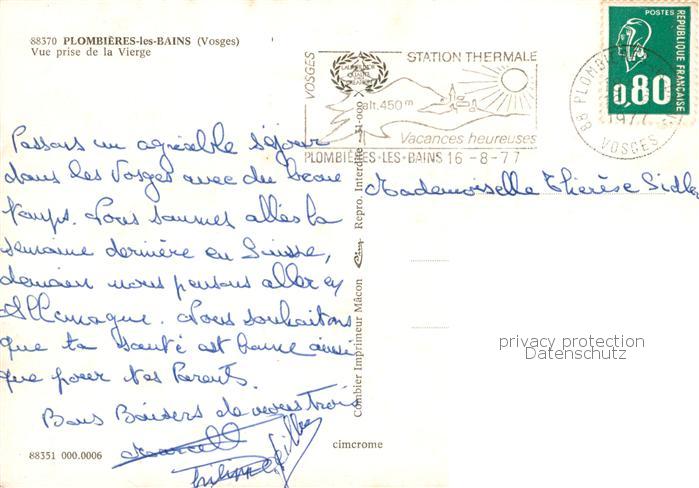 88370 PLOMBIÈRES-les-BAINS (Vosges)
Vue prise de la Vierge
VOSGES
STATION THERMALE
alt. 450 m
Vacances heureuses
PLOMBIÈRES-LES-BAINS 16-8-77
88 PLOMBIÈRES
1977
VOSGES
POSTES
RÉPUBLIQUE FRANÇAISE
0,80
Passons un agréable séjour
dans les Vosges avec du beau
temps. Nous sommes allés la
semaine dernière en Suisse,
demain nous pensons aller en
Allemagne. Nous souhaitons
que ta santé est bonne ainsi
que pour tes Parents.
Bons Baisers de nous trois
Marcel
Gilles
Philippe
Mademoiselle Thérèse Sidler
Combier Imprimeur Mâcon Cim Repro. Interdite 71-000
privacy protection
Datenschutz
cimcrome
88351 000.0006